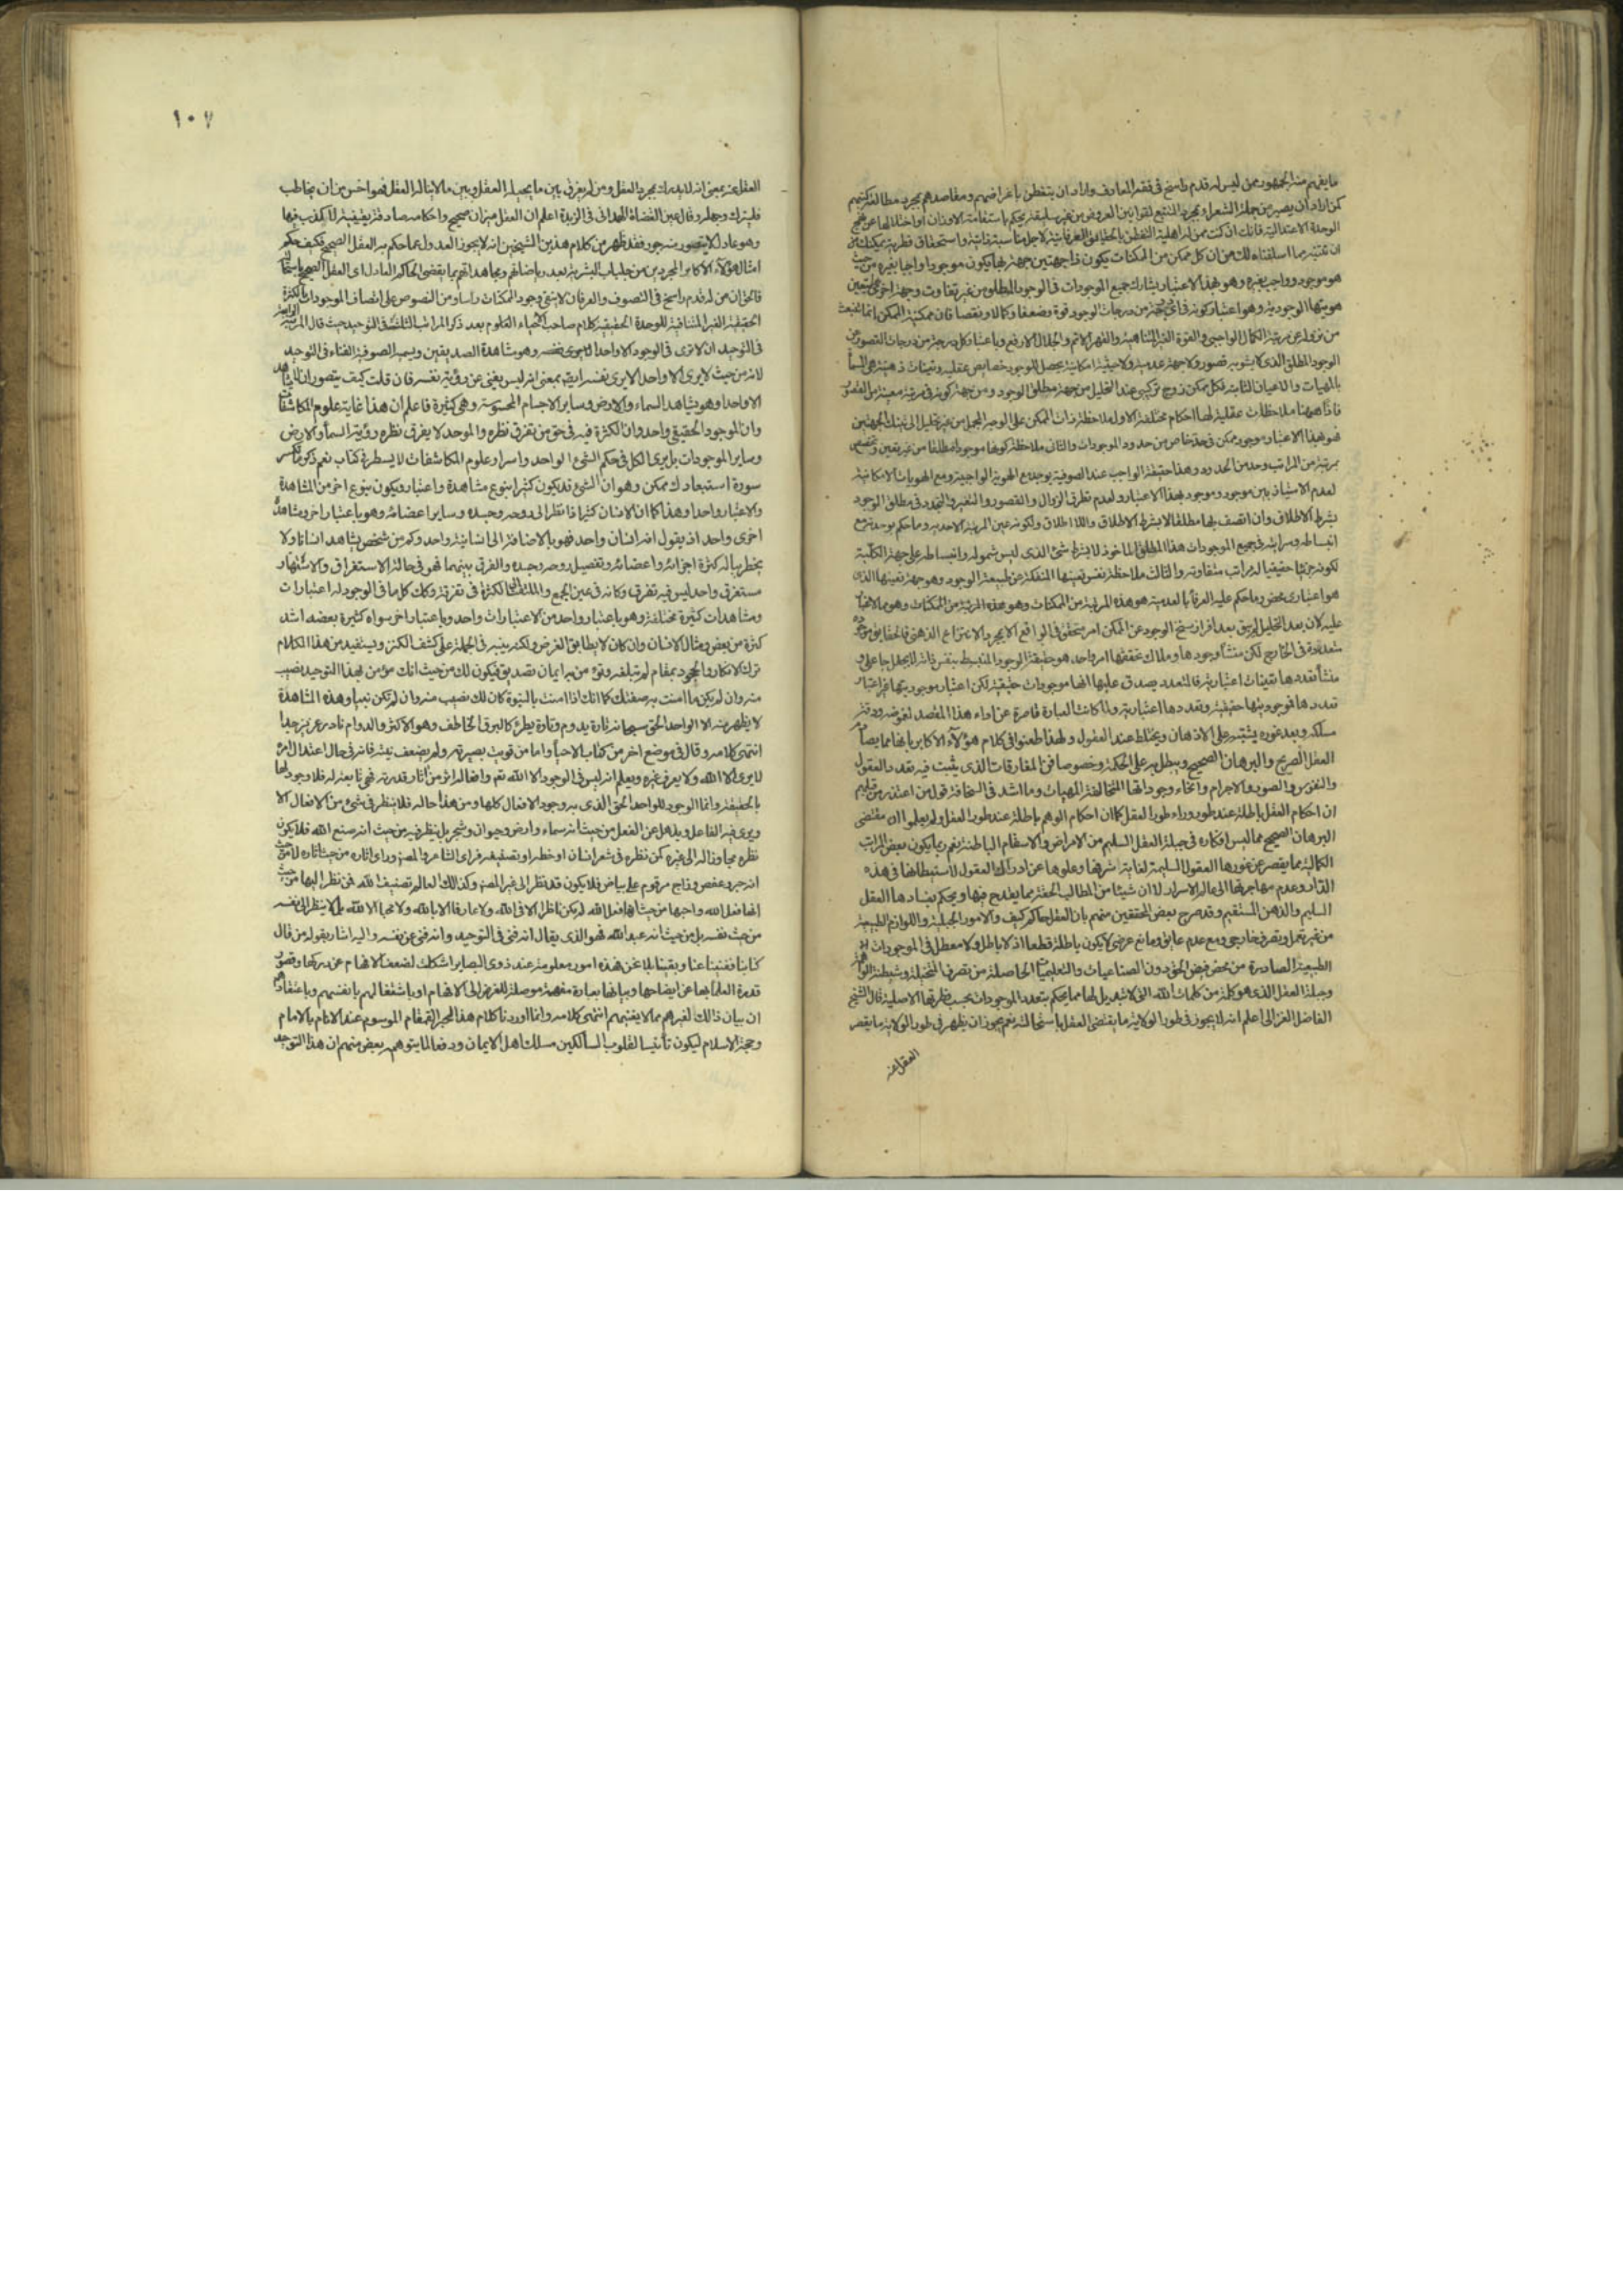 ما يفهم منه الجمهور ممن ليس له قدم راسخ في فقه المعارف واراد ان يتفطن باغراضهم ومقاصدهم بمجرد مطالعة كتبهم
كمن اراد ان يصير من جملة الشعراء بمجرد التتبع لقوانين العروض من غير سليقة يحكم باستقامة الاوزان او اختلالها عن نهج
الوحدة الاعتدالية فانك ان كنت ممن له اهلية التفطن بالحقايق العرفانية لاجل مناسبة ذاتية واستحقاق فطري يمكنك
ان تتنبه مما اسلفناه لك من ان كل ممكن من الممكنات يكون ذا جهتين جهة بها يكون موجودا واجبا بغيره من حيث
هو موجود وواجب بغيره وهو بهذا الاعتبار يشارك جميع الموجودات في الوجود المطلق من غير تفاوت وجهة اخرى بها يتعين
هويتها الوجودية وهو اعتبار كونه في اي درجة من درجات الوجود قوة وضعفا وكمالا ونقصا فان ممكنية الممكن انما ينبعث
من نزوله عن مرتبة الكمال الواجبي والقوة الغير المتناهية والقهر الاتم والجلال الارفع وباعتبار كل درجة من درجات القصور عن
الوجود المطلق الذي لا يشوبه قصور ولا جهة عدمية ولا حيثية امكانية يحصل للوجود خصايص عقلية وتعينات ذهنية هي المسماة
بالمهيات والاعيان الثابتة فكل ممكن زوج تركيبي عند التحليل من جهة مطلق الوجود ومن جهة كونه في مرتبة معينة من القصور
فاذا ههنا ملاحظات عقلية لها احكام مختلفة الاولى ملاحظة ذات الممكن على الوجه المجمل من غير تحليل الى تينك الجهتين
فهو بهذا الاعتبار موجود ممكن في حد خاص من حدود الموجودات والثاني ملاحظة كونها موجودا مطلقا من غير تعين وتخصص
بمرتبة من المراتب وحد من الحدود وهذا حقيقة الواجب عند الصوفية يوجد مع الهوية الواجبية ومع الهويات الامكانية
لعدم الامتياز بين موجود وموجود بهذا الاعتبار ولعدم تطرق الزوال والقصور والتغير والتجدد في مطلق الوجود
بشرط الاطلاق وان اتصف بها مطلقا لا بشرط الاطلاق واللا اطلاق ولكونه عين المرتبة الاحدية وما حكم بوحدته مع
انبساطه وسرايته في جميع الموجودات هذا المطلق الماخوذ لا بشرط شئ الذي ليس شموله وانبساطه على جهة الكلية
لكونه جزئيا حقيقيا له مراتب متفاوتة والثالث ملاحظة نفس تعينها المنفكة عن طبيعة الوجود وهو جهة تعينها الذي
هو اعتباري محض وما حكم عليه العرفا بالعدمية هو هذه المرتبة من الممكنات وهو هذه المرتبة من الممكنات وهو مما لا غبار
عليه لان بعد التحليل لم يبق بعد افراز سنخ الوجود عن الممكن امر متحقق في الواقع الا بمجرد الانتزاع الذهني فالحقايق موجودة
متعددة في الخارج لكن منشأ وجودها وملاك تحققها امر واحد هو حقيقة الوجود المنبسط بنفس ذاته لا بجعل جاعل و
منشأ تعددها تعينات اعتبارية فالمتعدد يصدق عليها انها موجودات حقيقية لكن اعتبار موجوديتها غير اعتبار
تعددها فموجوديتها حقيقية وتعددها اعتبارية ولما كانت العبارة قاصرة عن اداء هذا المقصد لغموضه ودقة
مسلكه وبعد غوره يشتبه على الاذهان ويختلط عند العقول ولهذا طعنوا في كلام هؤلاء الاكابر بانها مما يصادم
العقل الصريح والبرهان الصحيح ويبطل به على الحكمة وخصوصا فن المفارقات الذي يثبت فيه تعدد العقول
والنفوس والصور والاجرام وانحاء وجوداتها المتخالفة المهيات وما اشد في السخافة قول من اعتذر من قبلهم
ان احكام العقل باطلة عند طور وراء طور العقل كما ان احكام الوهم باطلة عند طور العقل ولم يعلموا ان مقتضى
البرهان الصحيح مما ليس انكاره في جبلة العقل السليم من الامراض والاسقام الباطنة نعم ربما يكون بعض المراتب
الكمالية مما يقصر عن غورها العقول السليمة لغاية شرفها وعلوها عن ادراك العقول لاستيطانها في هذه
الدار وعدم مهاجرتها الى عالم الاسرار لا ان شيئا من المطالب الحقة مما يقدح فيها ويحكم بفسادها العقل
السليم والذهن المستقيم وقد صرح بعض المحققين منهم بان العقل حاكم كيف والامور الجبلية واللوازم الطبيعية
من غير تعمل وتصرف خارجي ومع عدم عايق ومانع عرضي لا يكون باطلة قطعا اذ لا باطل ولا معطل في الموجودات
الطبيعية الصادرة من محض فيض الحق دون الصناعيات والتعليميات الحاصلة من تصرف المتخيلة وشيطنة الواهمة
وجبلة العقل الذي هو كلمة من كلمات الله التي لا تبديل لها مما يحكم بتعدد الموجودات بحسب فطرتها الاصلية قال الشيخ
الفاضل الغزالي اعلم انه لا يجوز في طور الولاية ما يقضي العقل باستحالته نعم يجوز ان يظهر في طور الولاية ما يقصر
العقل عنه
١٠٧
العقل عنه بمعنى انه لا يدرك بمجرد العقل ومن لم يفرق بين ما يحيله العقل وبين ما لا يناله العقل فهو اخس من ان يخاطب
فليترك وجهله وقال عين القضاة الهمداني في الزبدة اعلم ان العقل ميزان صحيح واحكامه صادقة يقينية لا كذب فيها
وهو عادل لا يتصور منه جور فقد ظهر من كلام هذين الشيخين انه لا يجوز العدول عما حكم به العقل الصحيح فكيف حكم
امثال هؤلاء الاكابر المجردين من جلباب البشرية بعد رياضاتهم ومجاهداتهم بما يقضي الحاكم العادل اي العقل الصحيح باستحالته
فالحق ان من له قدم راسخ في التصوف والعرفان لا ينفي وجود الممكنات راسا ومن النصوص على اتصاف الموجودات بالكثرة
الحقيقية الغير المتنافية للوحدة الحقيقية كلام صاحب احياء العلوم بعد ذكر المراتب الثلثة في التوحيد حيث قال المرتبة الرابعة
في التوحيد ان لا يرى في الوجود الا واحدا لا يرى نفسه وهو مشاهدة الصديقين ويسميه الصوفية الفناء في التوحيد
لانه من حيث لا يرى الا واحدا لا يرى نفسه ايضا بمعنى انه ليس يغني عن رؤية نفسه فان قلت كيف يتصور ان لا يشاهد
الا واحدا وهو يشاهد السماء والارض وساير الاجسام المحسوسة وهي كثيرة فاعلم ان هذا غاية علوم المكاشفات
وان الموجود الحقيقي واحد وان الكثرة فيه في حق من تفرق نظره والموحد لا يفرق نظره رؤية السماء والارض
وساير الموجودات بل يرى الكل في حكم الشئ الواحد واسرار علوم المكاشفات لا يسطر في كتاب نعم ذكر ما يكسر
سورة استبعادك ممكن وهو ان الشئ قد يكون كثيرا بنوع مشاهدة واعتبار ويكون بنوع اخر من المشاهدة
والاعتبار واحدا وهذا كما ان الانسان كثير اذا نظر الى روحه وجسده وساير اعضائه وهو باعتبار اخر ومشاهدة
اخرى واحد اذ يقول انه انسان واحد فهو بالاضافة الى انسانيته واحد وكم من شخص يشاهد انسانا ولا
يخطر بباله كثرة اجزائه واعضائه وتفصيل روحه وجسده والفرق بينهما فهو في حالة الاستغراق والاستهتار
مستغرق واحد ليس فيه تفرق وكانه في عين الجمع والملتفت الى الكثرة في تفرقة وكك كلما في الوجود له اعتبارات
ومشاهدات كثيرة مختلفة وهو باعتبار واحد من الاعتبارات واحد وباعتبار اخر سواه كثيرة بعضه اشد
كثرة من بعض ومثال الانسان وان كان لا يطابق الغرض ولكنه ينبه في الجملة على كشف الكثير ويستفيد من هذا الكلام
ترك الانكار والجحود بمقام لم تبلغه وتؤمن به ايمان تصديق فيكون لك من حيث انك مؤمن بهذا التوحيد نصيب
منه وان لم يكن ما امنت به صفتك كما انك اذا امنت بالنبوة كان لك نصيب منه وان لم تكن نبيا وهذه المشاهدة
لا يظهر منه الا الواحد الحق سبحانه تارة يدوم وتارة يطرء كالبرق الخاطف وهو الاكثر والدوام نادر عزيز جدا
انتهى كلامه وقال في موضع اخر من كتاب الاحياء واما من قويت بصيرته ولم يضعف نيته فانه في حال اعتدال امره
لا يرى الا الله ولا يعرف غيره ويعلم انه ليس في الوجود الا الله تعم وافعاله اثر من آثار قدرته فهي تابعة له فلا وجود لها
بالحقيقة وانما الوجود للواحد الحق الذي به وجود الافعال كلها ومن هذا حاله فلا ينظر في شئ من الافعال الا
ويرى فيه الفاعل ويذهل عن الفعل من حيث انه سماء وارض وحيوان وشجر بل ينظر فيه من حيث انه صنع الله فلا يكون
نظره مجاوزا له الى غيره كمن نظر في شعر انسان او خطه او تصنيفه فراى الشاعر والمصنف وراى اثاره من حيث اثاره لا من حيث
انه حبر وعفص وزاج مرقوم على بياض فلا يكون قد نظر الى غير المصنف وكذلك العالم تصنيف الله فمن نظر اليها من حيث
انها فعل الله واحبها من حيث انها فعل الله لم يكن ناظرا الا في الله ولا عارفا الا بالله ولا محبا الا لله بل لا ينظر الى نفسه
من حيث نفسه بل من حيث انه عبد الله فهو الذي يقال انه فنى في التوحيد وانه فنى عن نفسه واليه اشار بقوله من قال
كنا بنا ففنينا عنا وبقينا بلا نحن فهذه امور معلومة عند ذوي البصاير اشكلت لضعف الافهام عن دركها وقصور
قدرة العلماء بها عن ايضاحها وبيانها بعبارة مفهمة موصلة للغرض الى الافهام او باشتغالهم بانفسهم وباعتقادهم
ان بيان ذالك لغيرهم مما لا يعنيهم انتهى كلامه وانما اوردنا كلام هذا الحبر القمقام الموسوم عند الانام بالامام
وحجة الاسلام ليكون تأنيسا لقلوب السالكين مسلك اهل الايمان ودفعا لما يتوهمه بعض منهم ان هذا التوحيد